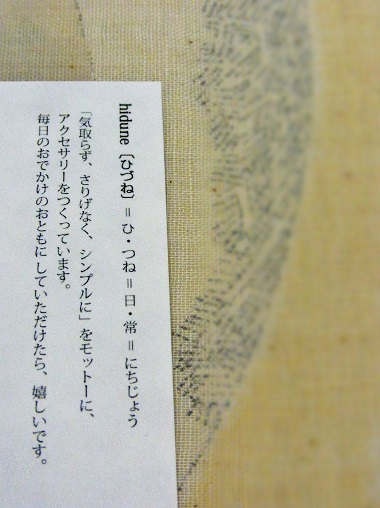 hidune [ひづね] = ひ・つね = 日・常 = にちじょう
「気取らず、さりげなく、シンプルに」をモットーに、
アクセサリーをつくっています。
毎日のおでかけのおともにしていただけたら、嬉しいです。